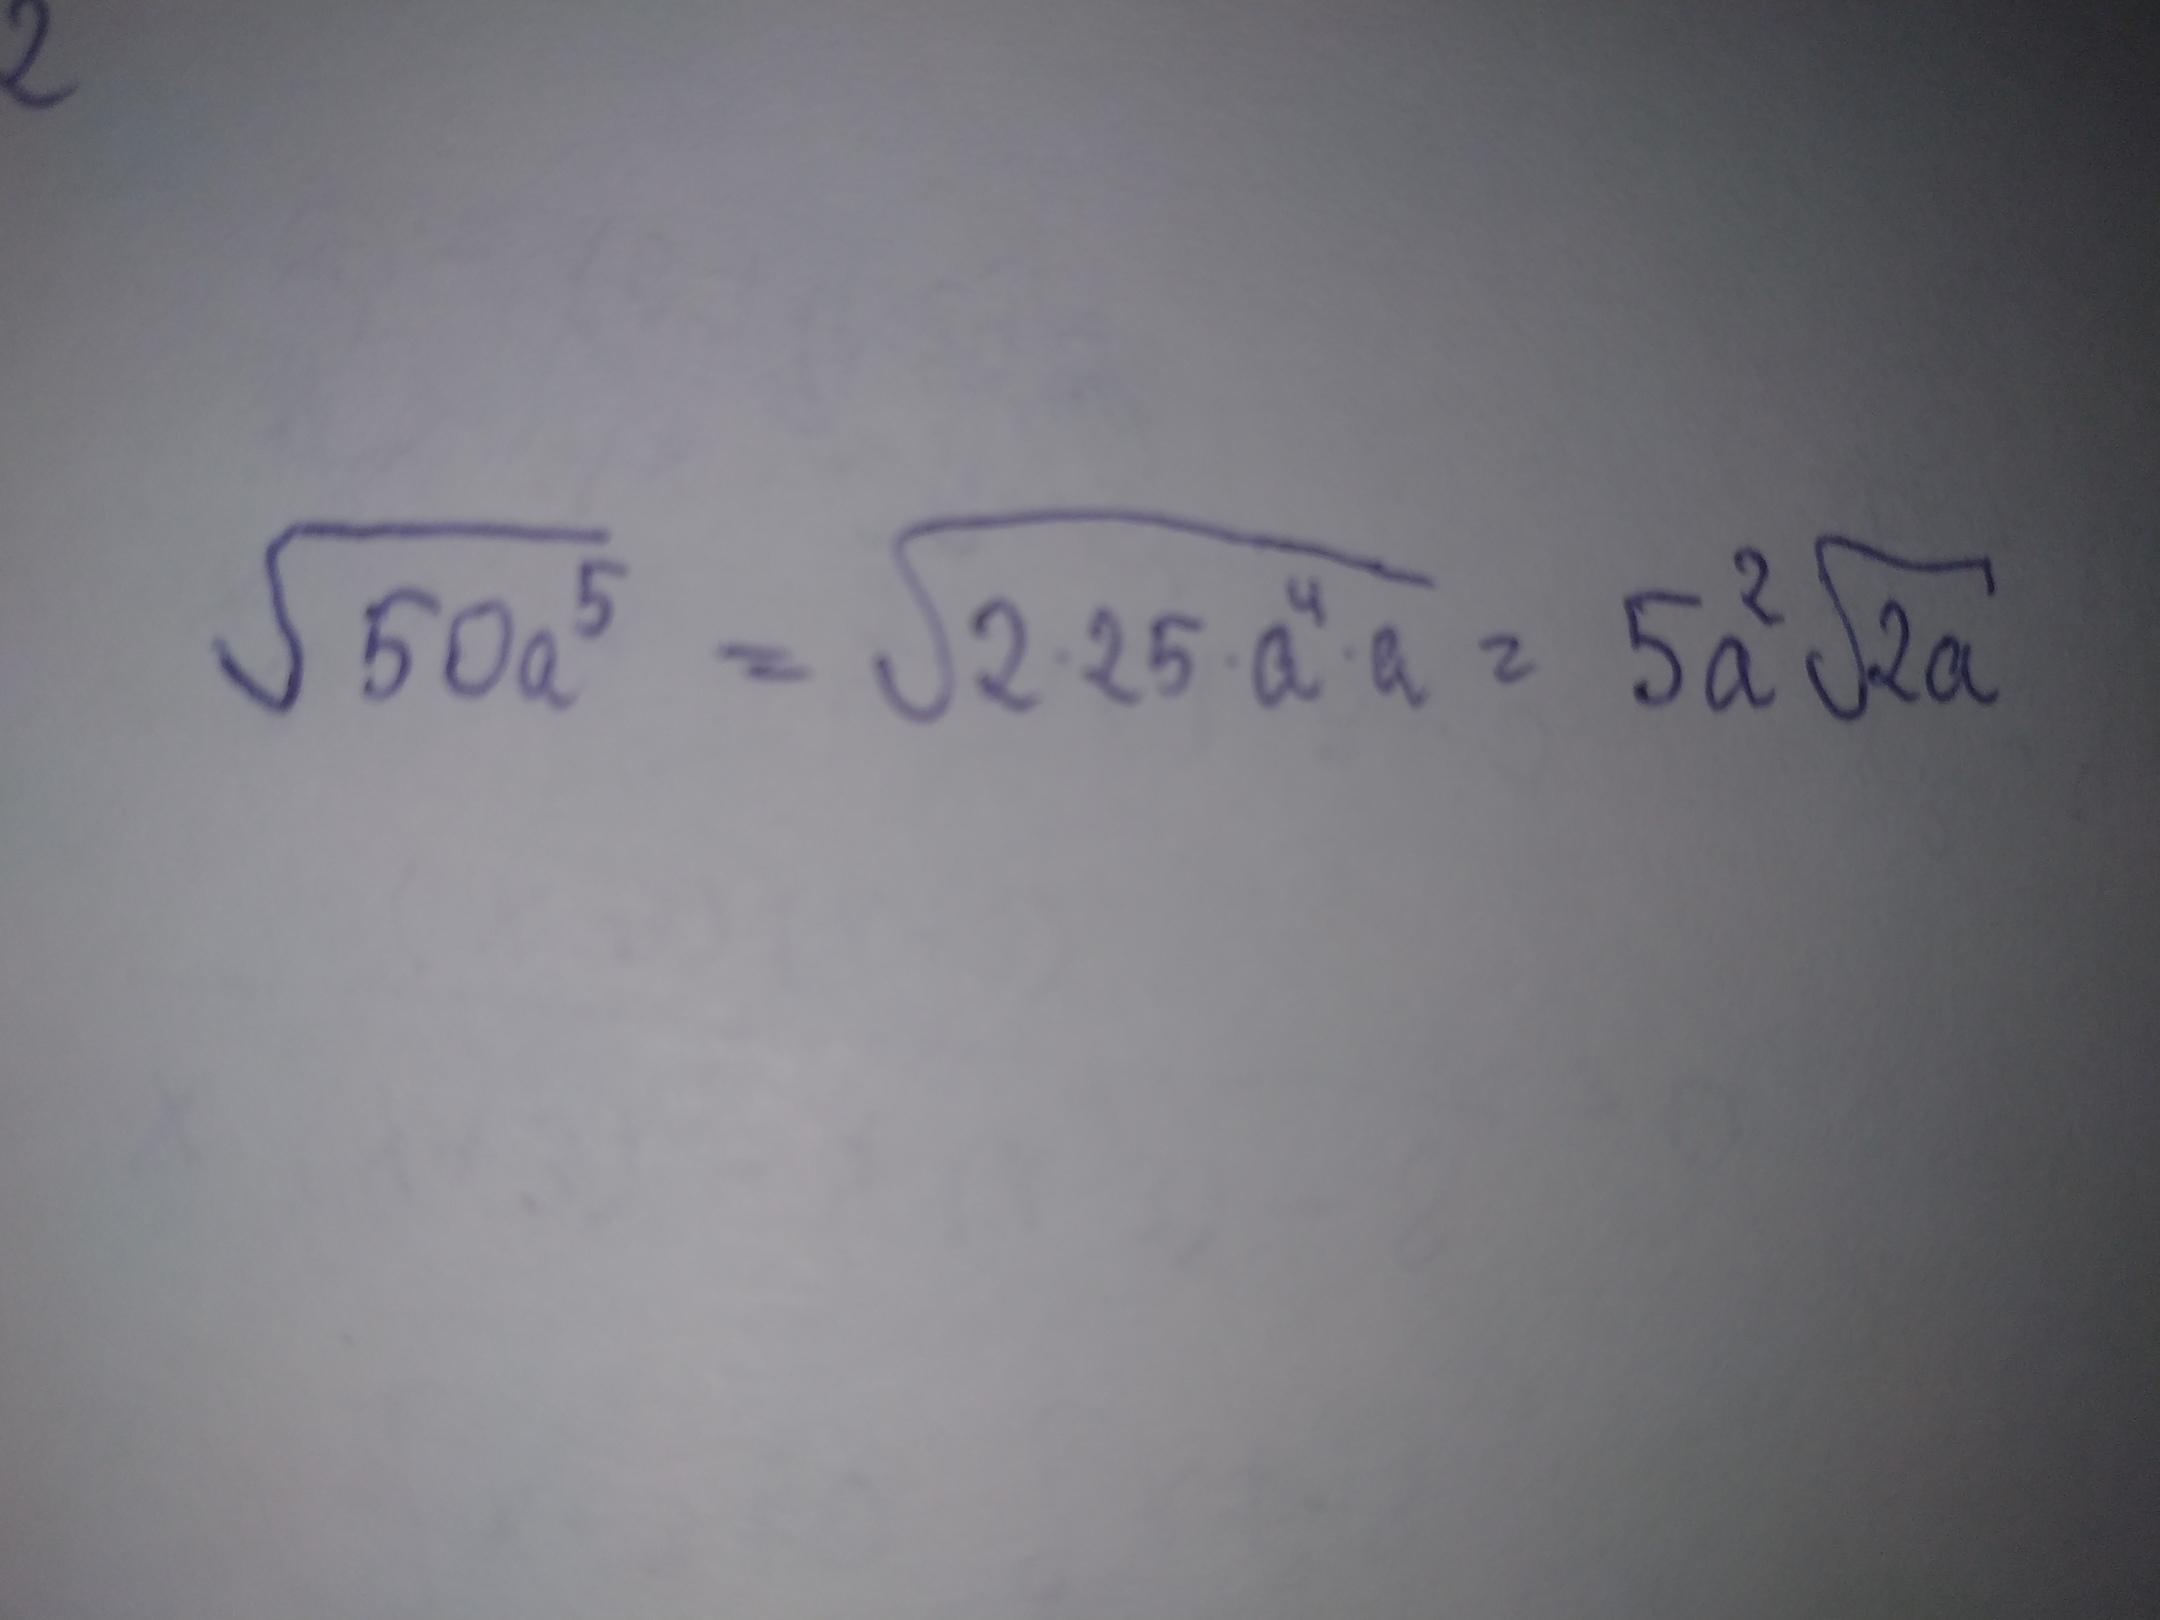 2
√50a⁵ = √2·25·a⁴·a = 5a²√2a